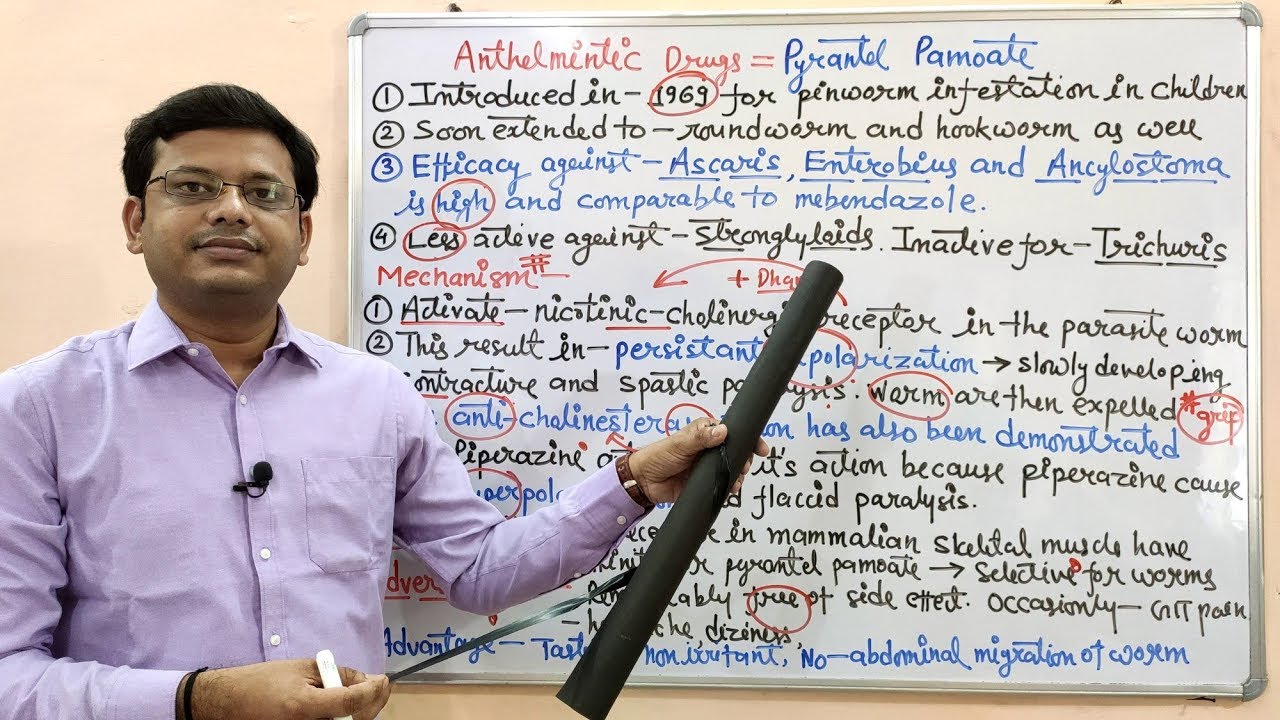 Anthelmintic Drugs = Pyrantel Pamoate
① Introduced in - 1969 for pinworm infestation in children
② Soon extended to - roundworm and hookworm as well
③ Efficacy against - Ascaris, Enterobius and Ancylostoma
is high and comparable to mebendazole.
④ Less active against - Strongyloids. Inactive for - Trichuris
Mechanism #
+
① Activate - nicotinic - cholinergic receptor in the parasite worm
② This result in - persistant polarization → slowly developing
contracture and spastic paralysis. Worm are then expelled # grip
anti-cholinesterase has also been demonstrated
Piperazine it's action because piperazine cause
flaccid paralysis.
in mammalian skeletal muscle have
pyrantel pamoate → selective for worms
free of side effect. Occasionly - GIT pain
diziness
Advantage - non irritant, No - abdominal migration of worm